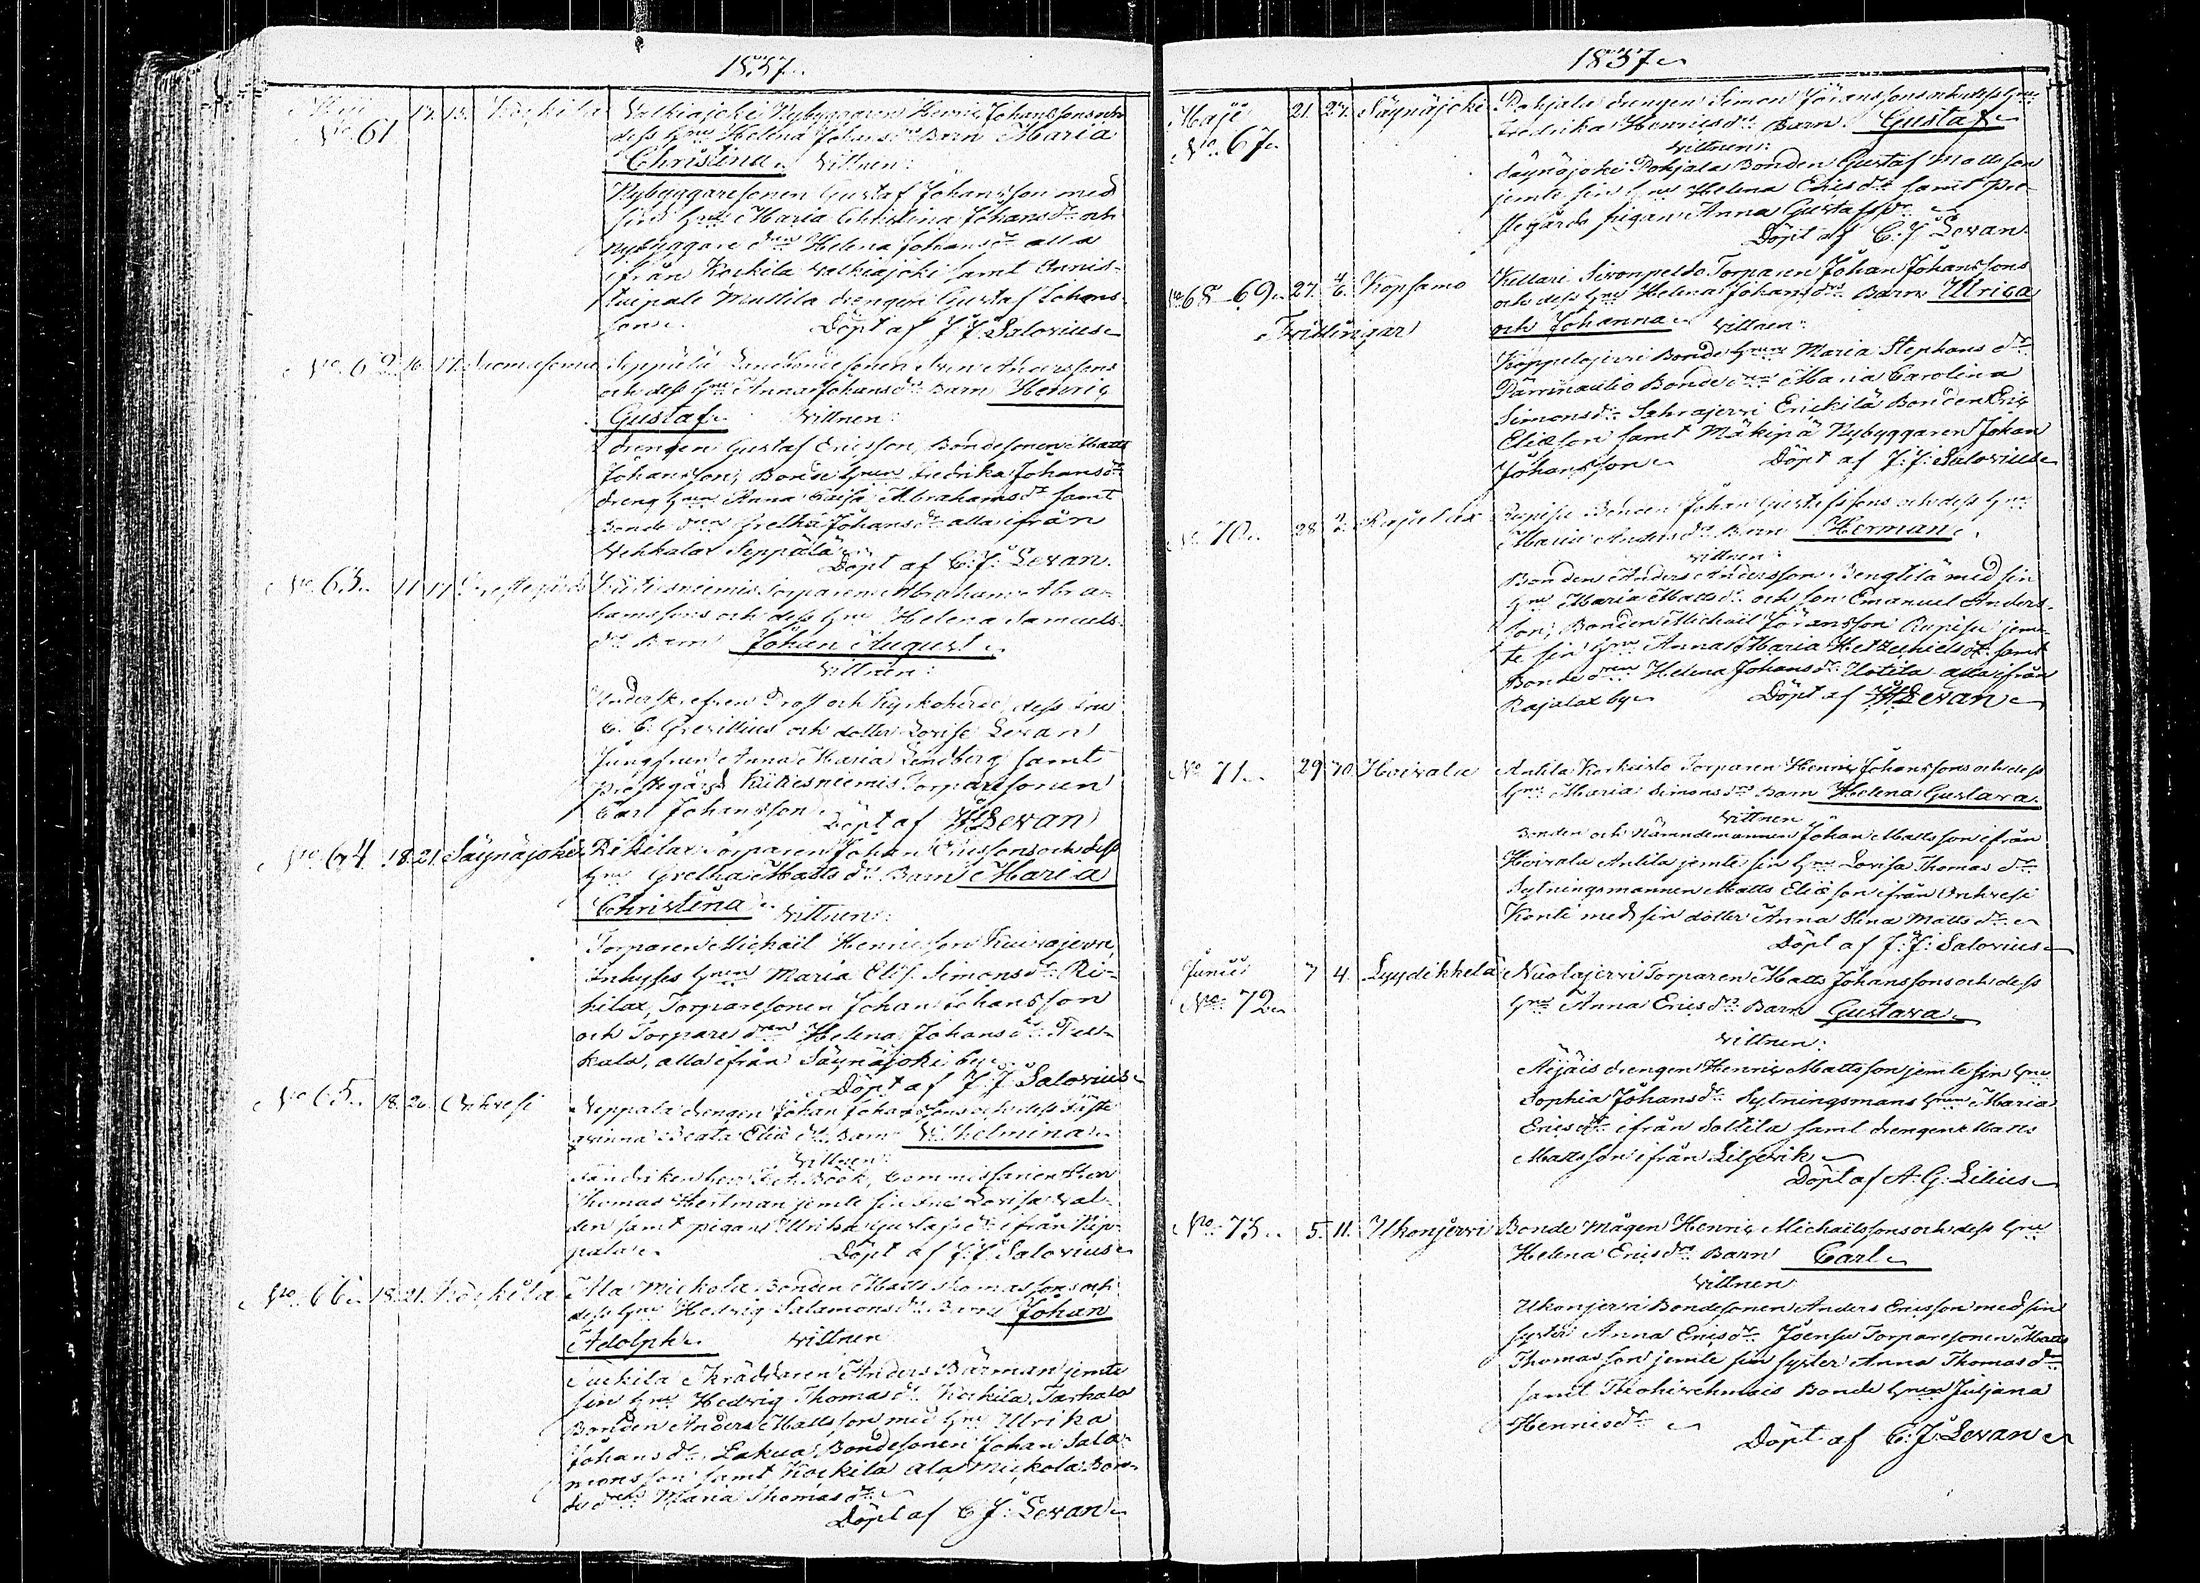 1837.
Maji 12. 13. Kockila Valkiajoki Nybyggaren Henric Johanssons och
No 61. dess Hru Helena Johansdr Barn Maria
Christina. Vittnen:
Nybyggaresonen Gustaf Johansson med
sin Hru Maria Christina Johansdr och
Nybyggare dren Helena Johansdr alla
ifrån Kockila Valkiajoki samt Onnis-
Muttila drengen Gustaf Johans-
son. Döpt af J. J. Salovius
No 62. 16. 17. Suomusenmu Seppälä Landbondesonen Sven Anderssons
och dess Hru Anna Johansdr Barn Henric
Gustaf. Vittnen:
drengen Gustaf Ericsson, Bondesonen Matts
Johansson, Bonde Hrun Fredrika Johansdr
dreng Hrun Anna Caisa Abrahamsdr samt
Bonde dren Gretha Johansdr alla ifrån
Vehkalax Seppälä. Döpt af C. J. Levan.
No 63. 11. 17. Prestegård Kütisniemis Torparen Abraham Abra-
hamssons och dess Hru Helena Samuels-
dr Barn Johan August
Vittnen:
Underskrefven Prost och Kyrkoherde, dess Fru
C. C. Grevillius och dotter Lovise Levan
Jungfrun Anna Maria Lindberg samt
Prestegårds Kütisniemis Torparesonen
Carl Johansson. Döpt af Levan
No 64. 18. 21. Säynäjoki Rikilax Torparen Johan Ericssons och dess
Hru Gretha Matts dr Barn Maria
Christina. Vittnen:
Torparen Michaël Henricsson Kuivajervi,
Inhyses Hrun Maria Elis. Simonsdr Ri-
kilax, Torparesonen Johan Johansson
och Torpare dren Helena Johansdr
alla ifrån Säynäjoki by.
Döpt af J. J. Salovius
No 65. 18. 20. Onkvesi Seppala drengen Johan Johanssons och dess Fäste-
qvinna Beata Elias dr Barn Vilhelmina
Vittnen:
Book, Commissarien Herr
Thomas Heilman jemte sin Fru Lovisa
samt pigan Ulrika Gustafsdr ifrån
Döpt af J. J. Salovius
No 66. 18. 21. Kockila Ala Mickola Bonden Matts Thomassons och
dess Hru Hedvig Salamonsdr Barn Johan
Adolph. Vittnen
Kockila Skräddaren Anders Bärman jemte
sin Hru Hedvig Thomasdr Kockila Tarkala
Bonden Anders Mattsson med Hru Ulrika
Johansdr, Lakua Bondesonen Johan Sala-
monsson samt Kockila Ala Mickola Bon-
de dren Maria Thomasdr
Döpt af C. J. Levan
1837
Maji 21. 27. Säynäjoki Pohjala drengen Simon Göranssons och dess Hru
No 67. Fredrika Henricsdr Barn Gustaf
Vittnen:
Säynäjoki Pohjala Bonden Gustaf Mattsson
jemte sin Hru Helena Ericsdr samt Pre-
stegårds pigan Anna Gustafsdr
Döpt af C. J. Levan
No 68-69. 27. Kopsamo Kullari Sivonpelto Torparen Johan Johanssons
och dess Hru Helena Johansdr Barn Ulrica
Tvillingar och Johanna. Vittnen:
Koppelojervi Bonde Hrun Maria Stephansdr
Pärnnautio Bonde dren Maria Carolina
Simonsdr Sahrajervi Erickilä Bonden Eric
Eliasson samt Mäkipä Nybyggaren Johan
Johansson Döpt af J. J. Salovius
No 70. 28. Rajalax Rupisu Bonden Johan Gustafssons och dess Hru
Maria Andersdr Barn Herman
Vittnen:
Bonden Anders Andersson Bengtilä med sin
Hru Maria Mattsdr och son Emanuel Anders-
son, Bonden Michaël Göransson Rupisu jem-
te sin Hru Anna Maria Hetzechielsdr samt
Bonde dren Helena Johansdr Hotila alla ifrån
Rajalax by Döpt af Levan
No 71. 29. 30. Hoivala Antila Korkiasto Torparen Henric Johanssons och dess
Hru Maria Simonsdr Barn Helena Gustava
Vittnen
Bonden och Nämndemannen Johan Mattsson ifrån
Hoivala Antila jemte sin Hru Lovisa Thomasdr
Sytningsmannen Matts Eliasson ifrån Onkvesi
Konti med sin dotter Anna Stina Mattsdr
Döpt af J. J. Salovius
Junii 7 4. Lyydikkelä Nuolajervi Torparen Matts Johanssons och dess
No 72. Hru Anna Ericsdr Barn Gustava
Vittnen:
Äijäis drengen Henric Mattsson jemte sin Hru
Sophia Johansdr Sytningsmans Hrun Maria
Ericsdr ifrån Soltila samt drengen Matts
Mattsson ifrån Liljevik
Döpt af A. G. Lilius
No 73. 5. 11. Ukonjervi Bonde Mågen Henric Michaëlssons och dess Hru
Helena Ericsdr Barn Carl
Vittnen
Ukonjervi Bondesonen Anders Ericsson med sin
syster Anna Ericsdr Joensu Torparesonen Matts
Thomasson jemte sin syster Anna Thomasdr
samt Bonde Hrun Juljana
Henricsdr
Döpt af C. J. Levan